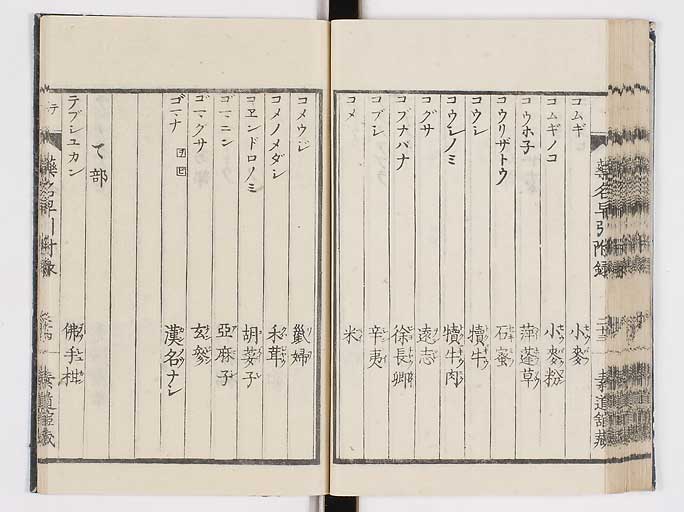 藥名早引附録
コムギ 小麥
コムギノコ 小麥粉
コウホ子 萍蓬草
コウリザトウ 石蜜
コウシ 犢牛
コウシノミ 犢牛肉
コグサ 遠志
コブナバナ 徐長卿
コブシ 辛夷
コメ 米
コメウジ 婦
コメノメダシ 禾茸
コヱンドロノミ 胡荽子
ゴマニン 亞麻子
ゴマグサ 玄參
ゴマナ 漢名ナシ
て部
テブシユカン 佛手柑
テ
藥名早引附録